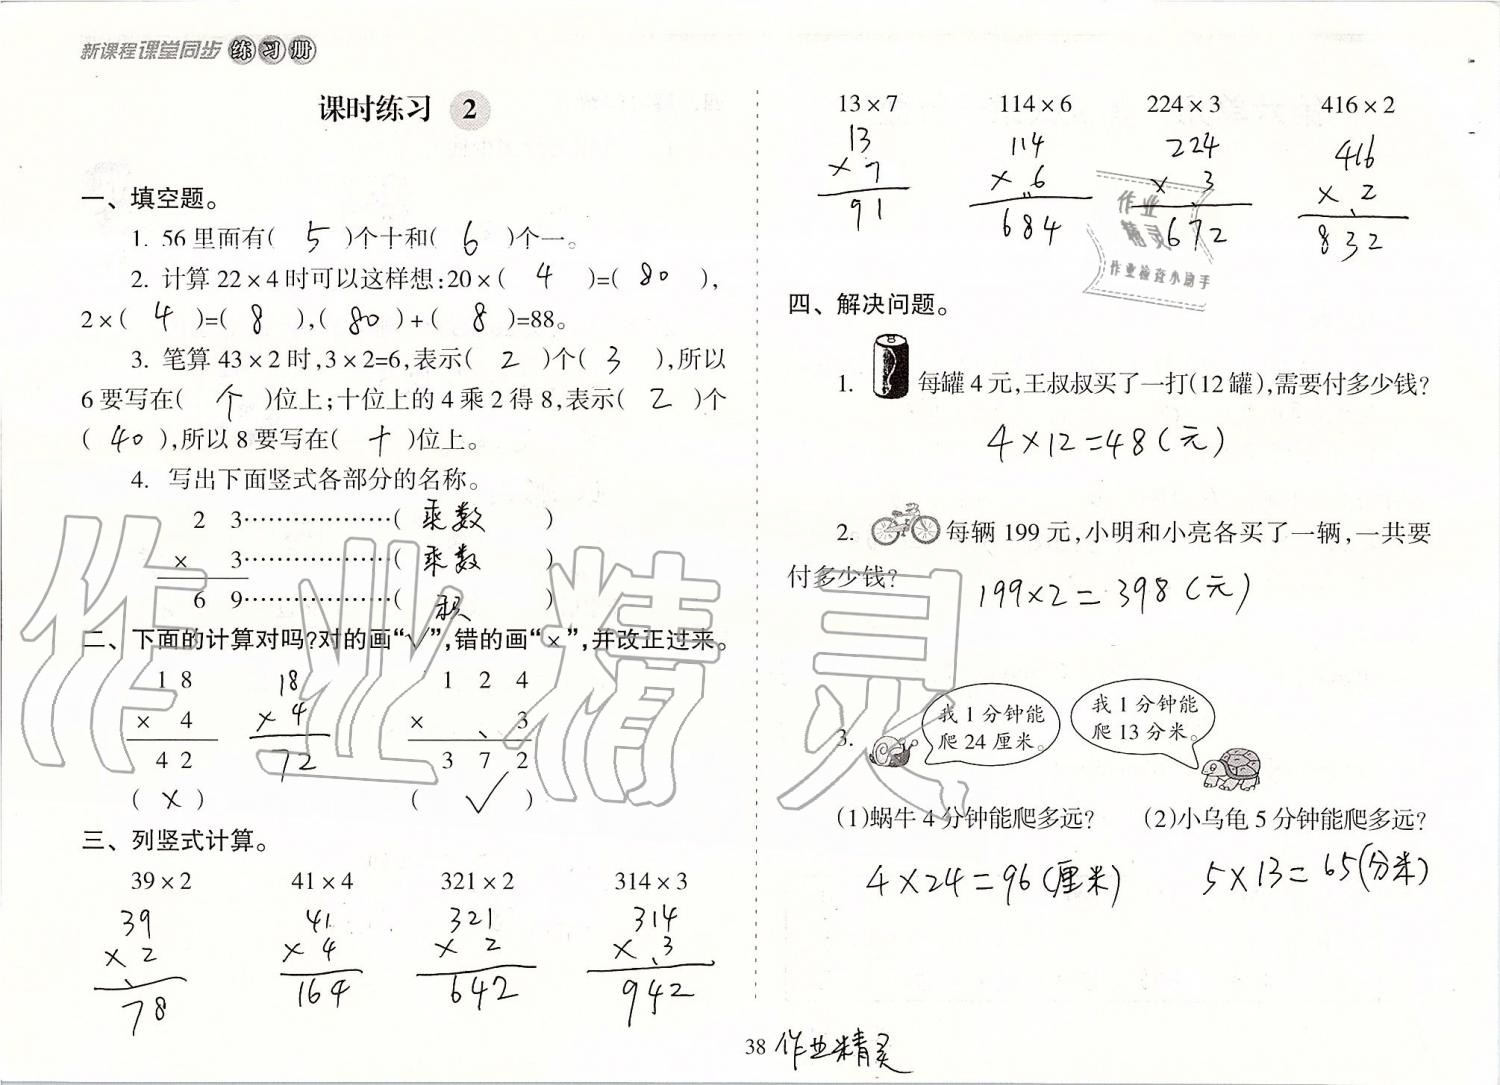 新课程课堂同步练习册
课时练习 2
一、填空题。
1. 56里面有( 5 )个十和( 6 )个一。
2. 计算22×4时可以这样想:20×( 4 )=( 80 ),
2×( 4 )=( 8 ),( 80 )+( 8 )=88。
3. 笔算43×2时,3×2=6,表示( 2 )个( 3 ),所以
6要写在( 个 )位上;十位上的4乘2得8,表示( 2 )个
( 40 ),所以8要写在( 十 )位上。
4. 写出下面竖式各部分的名称。
2 3………………( 乘数 )
× 3………………( 乘数 )
6 9………………( 积 )
二、下面的计算对吗?对的画“√”,错的画“×”,并改正过来。
1 8 18 1 2 4
× 4 ×4 × 3
4 2 72 3 7 2
( × ) ( √ )
三、列竖式计算。
39×2 41×4 321×2 314×3
39 41 321 314
×2 ×4 ×2 ×3
78 164 642 942
13×7 114×6 224×3 416×2
13 114 224 416
×7 ×6 ×3 ×2
91 684 672 832
作业
精灵
作业检查小助手
四、解决问题。
1. 每罐4元,王叔叔买了一打(12罐),需要付多少钱?
4×12=48(元)
2. 每辆199元,小明和小亮各买了一辆,一共要
付多少钱?
199×2=398(元)
3.
我1分钟能
爬24厘米。
我1分钟能
爬13分米。
(1)蜗牛4分钟能爬多远? (2)小乌龟5分钟能爬多远?
4×24=96(厘米) 5×13=65(分米)
38 作业精灵
作业精灵